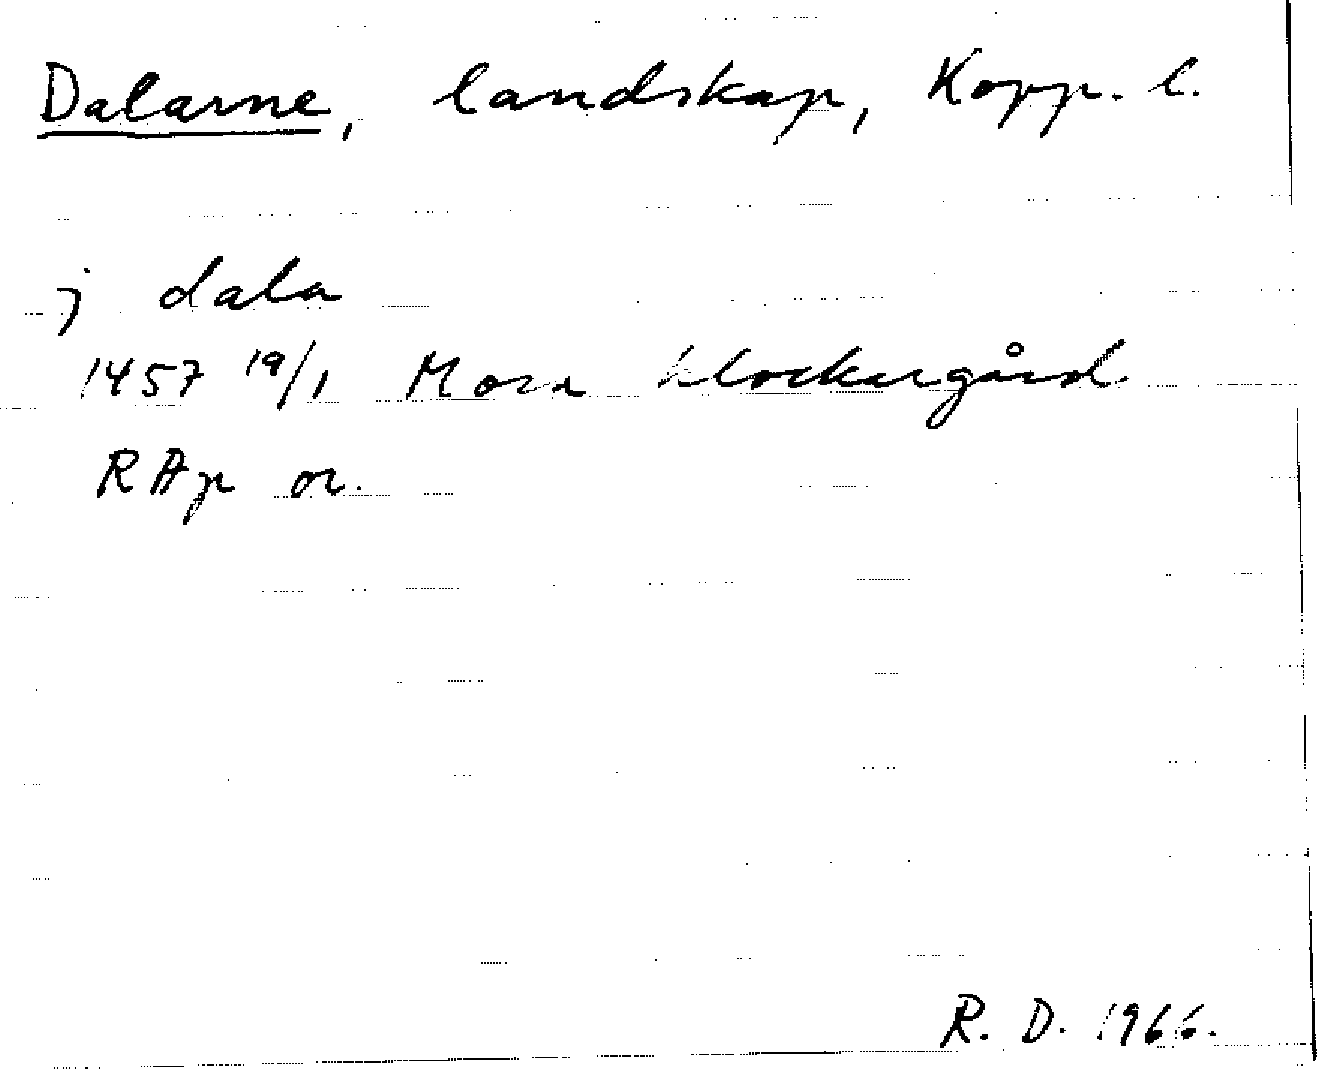 Dalarne, landskap, Kopp. l.
j dala
1457 19/1 Mora klockargård
RAp or.
R. D. 1966.